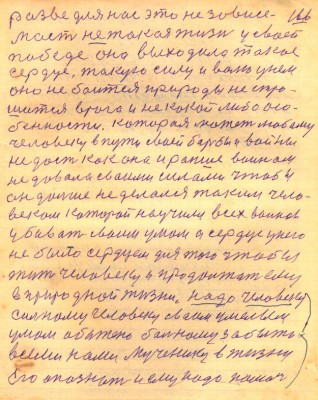 разве для нас это не зависи- 166
мость не такая жизн у своей
победе оно выходило такое
сердце, такую силу и волю у нем
оно не боится природы не стро-
шится врога и не какой либо осо-
бенности. которая может любому
человеку в пути своей борбы и войны
не даст как она и раньше воином
не довала своими силами чтобы
он дольше не делался таким чело-
веком которой научили всех воинов
убеват своим умом а сердце у него
не было сердцем для того чтобы
жит человеку и продолжат ему
в природной жизни. надо человеку
силному человеку своим умелым
умом обижено болному забыто-
всеми нами мученику в жизни
его опознат и ему надо помоч